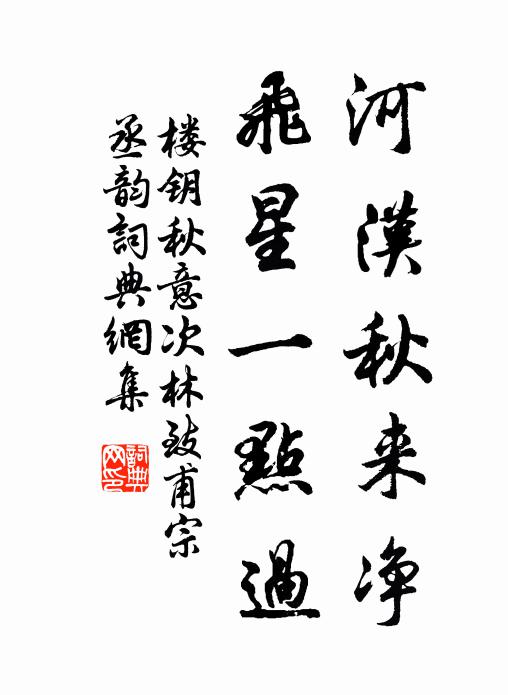 河漢秋来净
飛星一點過
楼钥秋意次林致甫宗
丞韵詞典網集
詞典网印